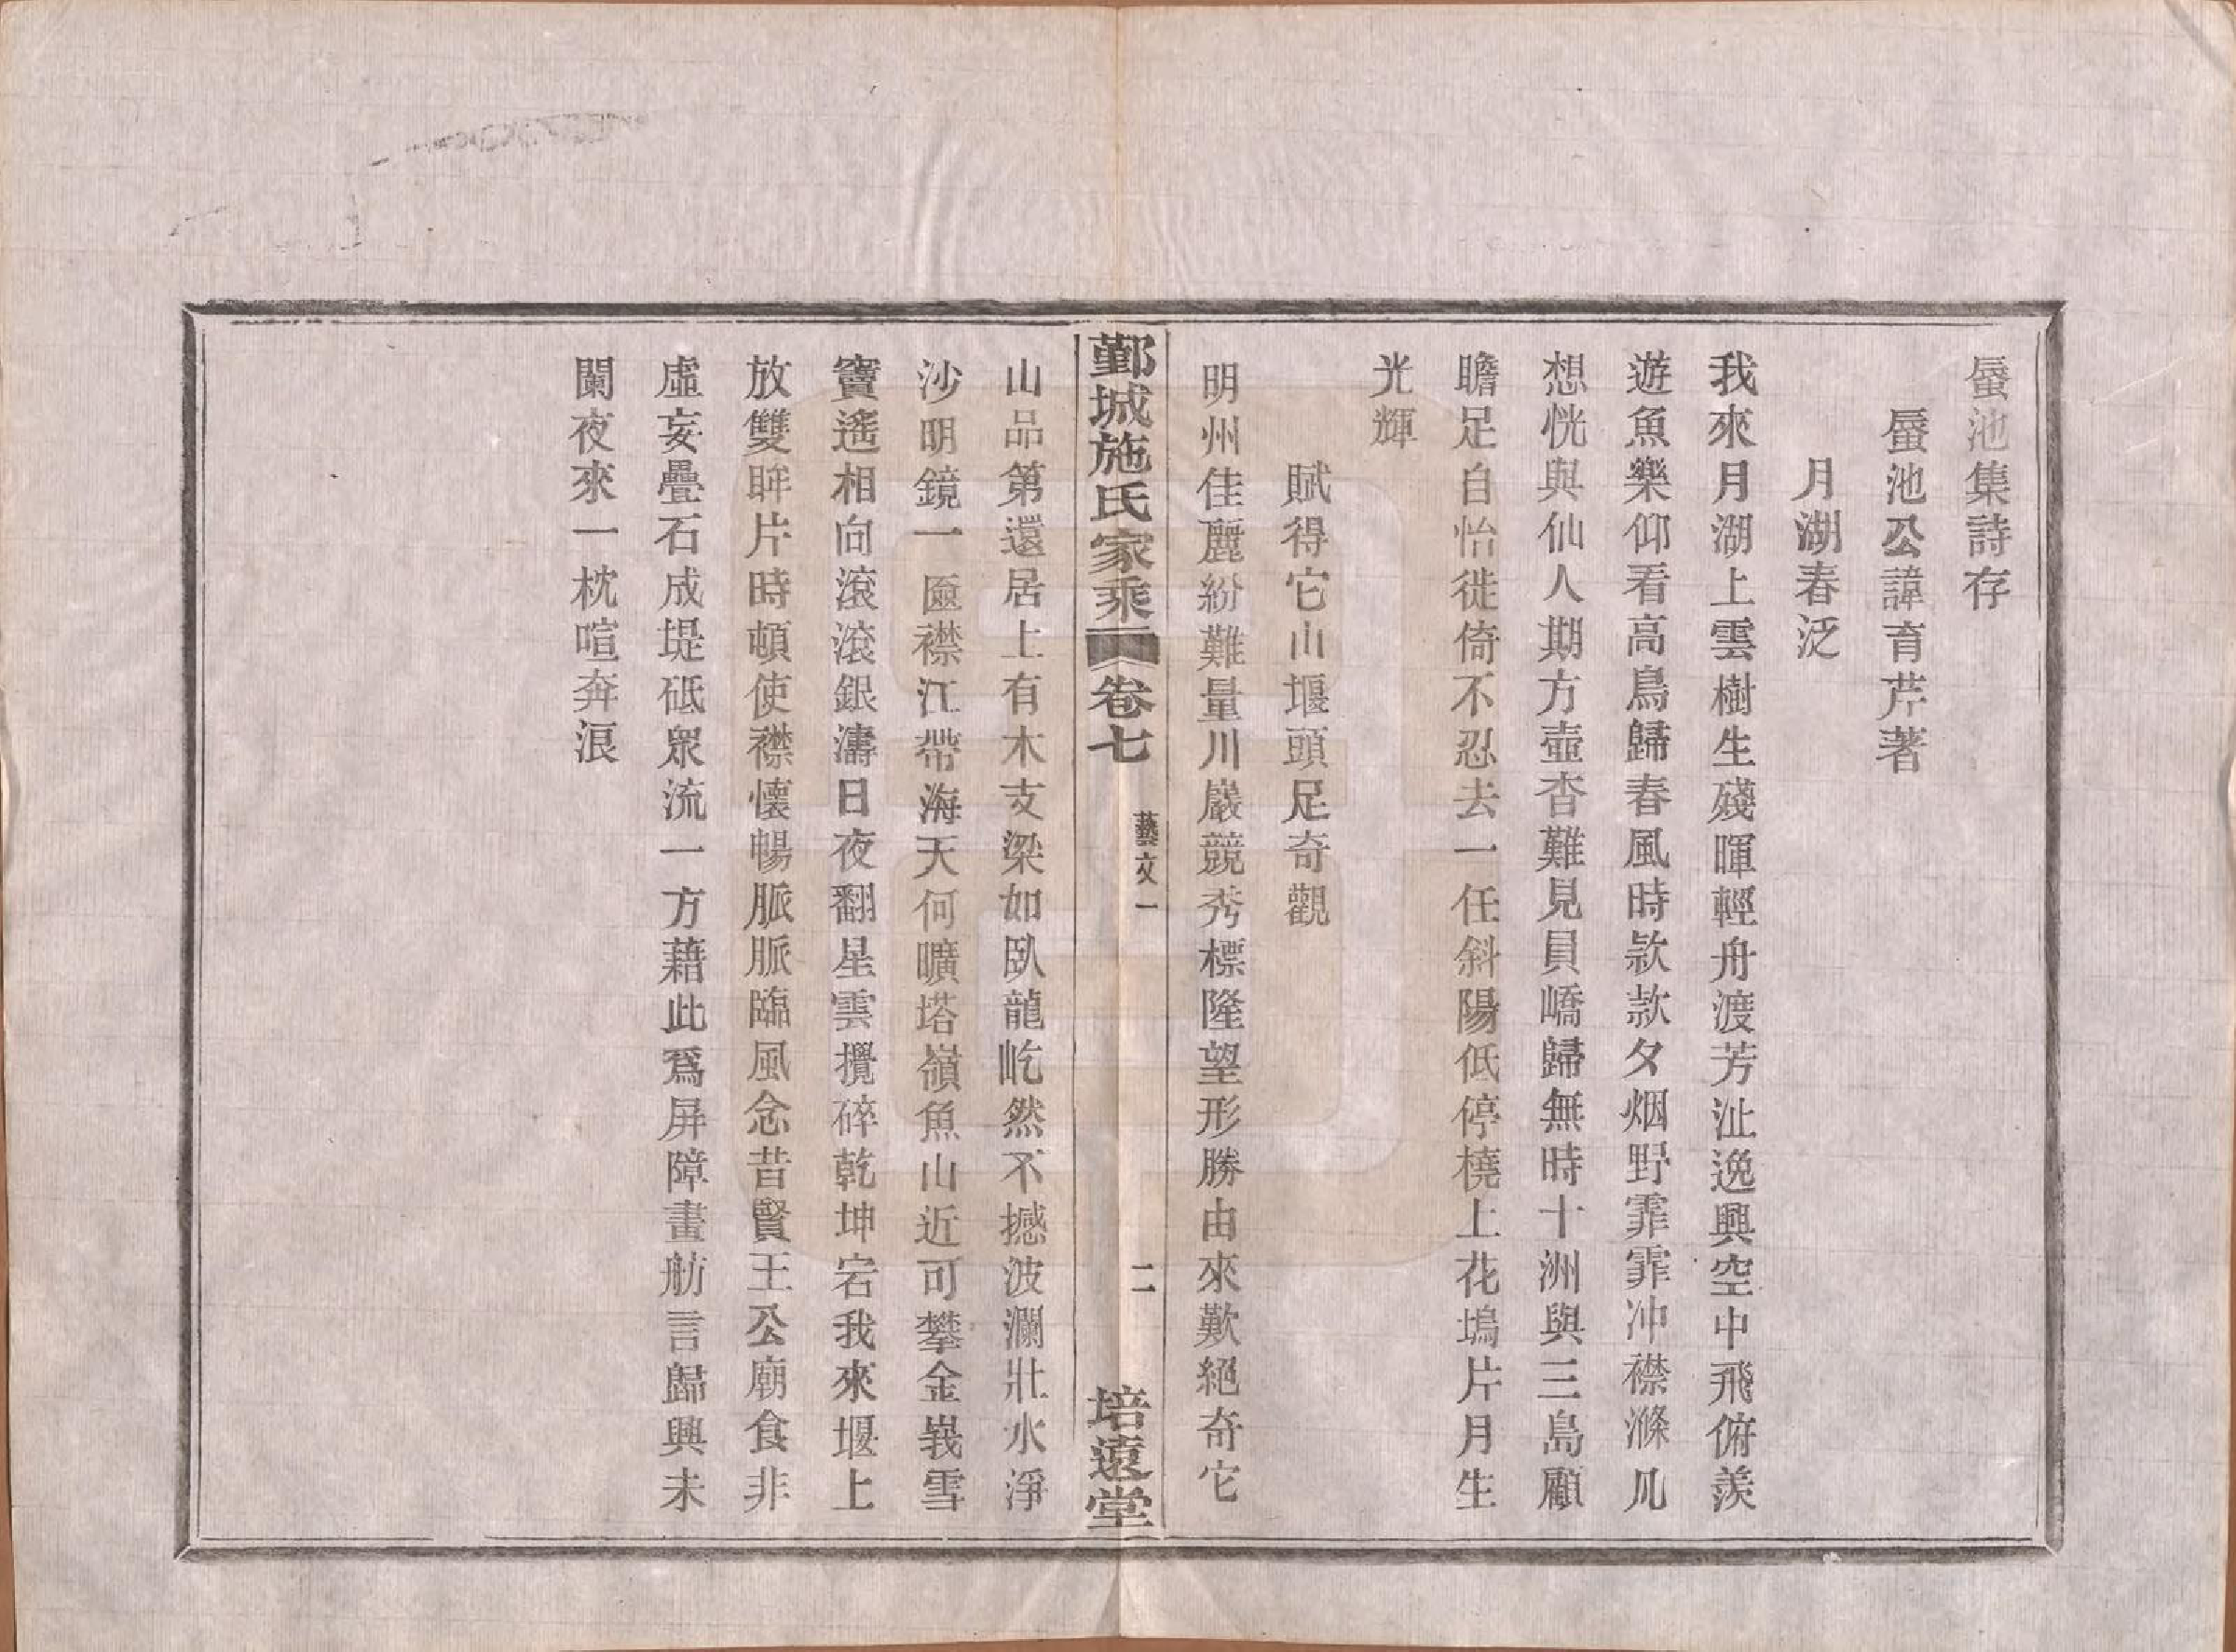 蜃池集詩存
蜃池公諱育芹著
月湖春泛
我來月湖上雲樹生殘暉輕舟渡芳沚逸興空中飛俯羨
遊魚樂仰看高鳥歸春風時款款夕烟野霏霏冲襟滌凡
想恍與仙人期方壺杳難見員嶠歸無時十洲與三島顧
瞻足自怡徙倚不忍去一任斜陽低停橈上花塢片月生
光輝
賦得它山堰頭足奇觀
明州佳麗紛難量川巖競秀標隆望形勝由來歎絕奇它
鄞城施氏家乘 卷七 藝文一 二 培遠堂
山品第還居上有木支梁如臥龍屹然不撼波瀾壯水淨
沙明鏡一匳襟江帶海天何曠塔嶺魚山近可攀金峩雪
竇遙相向滾滾銀濤日夜翻星雲攪碎乾坤宕我來堰上
放雙眸片時頓使襟懷暢脈脈臨風念昔賢王公廟食非
虛妄疊石成堤砥衆流一方藉此爲屏障畫舫言歸興未
闌夜來一枕喧奔浪